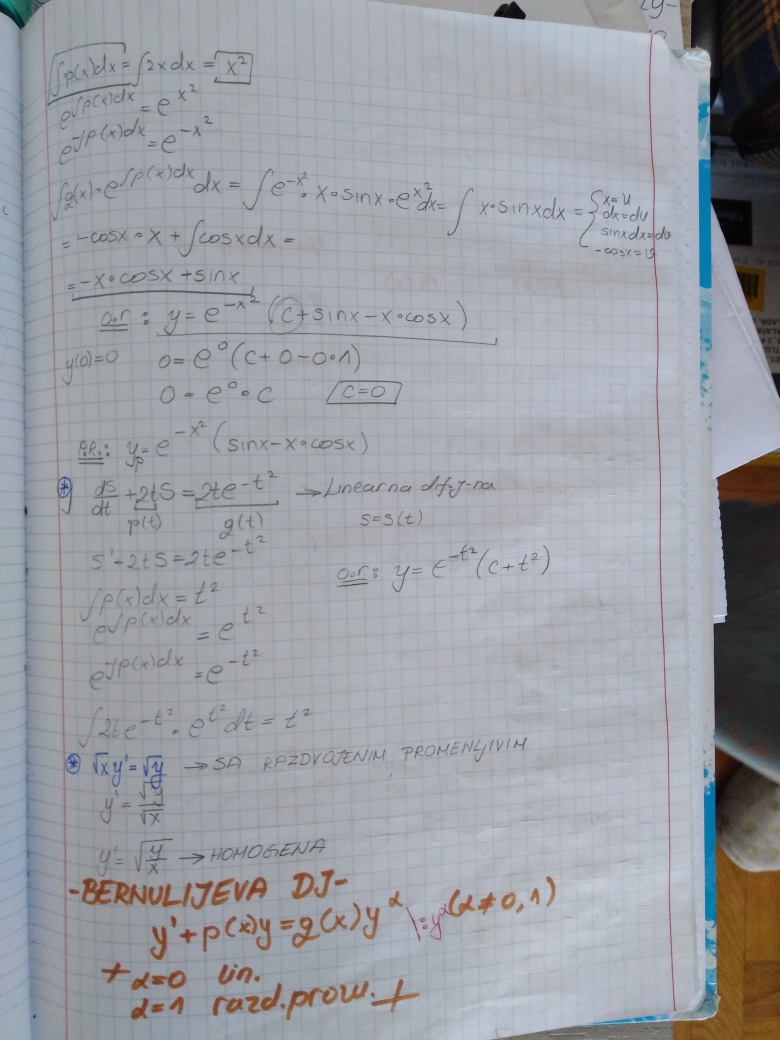 ∫p(x)dx = ∫2xdx = x²
e^∫p(x)dx = e^x²
e^-∫p(x)dx = e^-x²
∫g(x)·e^∫p(x)dx dx = ∫e^-x² · x·sinx·e^x² dx = ∫x·sinxdx = { x=u
dx=du
sinxdx=dv
-cosx=v
= -cosx·x + ∫cosxdx =
= -x·cosx + sinx
o.r: y = e^-x² (c+sinx-x·cosx)
y(0)=0 0=e⁰(c+0-0·1)
0 = e⁰·c c=0
P.R.: yp = e^-x² (sinx-x·cosx)
* ds/dt + 2tS = 2te^-t² → Linearna dif.j-na
p(t) g(t) s=s(t)
s'+2tS=2te^-t²
o.r: y = e^-t²(c+t²)
∫p(x)dx = t²
e^∫p(x)dx = e^t²
e^-∫p(x)dx = e^-t²
∫2te^-t² · e^t² dt = t²
* √x y' = √y → SA RAZDVOJENIM PROMENLJIVIM
y' = √y/√x
y' = √(y/x) → HOMOGENA
-BERNULIJEVA DJ-
y'+p(x)y=g(x)y^α |:y^α (α≠0,1)
+ α=0 lin.
α=1 razd.prom. +